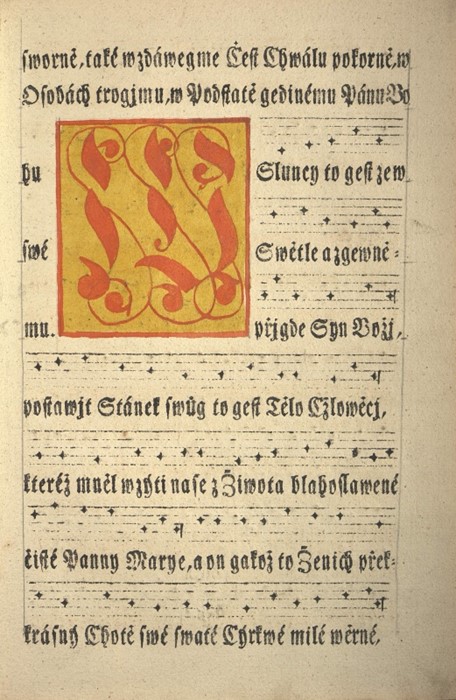 sworně, také wzdáwegme Čest Chwálu pokorně, w
Osobách trogjmu, w Podstatě gedinému Pánu Bo
hu
swé
mu.
W
Sluncy to gest zew
Swětle a zgewně-
přjgde Syn Božj,
postawjt Stánek swůg to gest Tělo Cžlowěcj,
kteréž mněl wzýti na se z Žiwota blahoslawené
čisté Panny Marye, a on gakož to Ženich přek-
krásný Chotě swé swaté Cýrkwé milé wěrné,